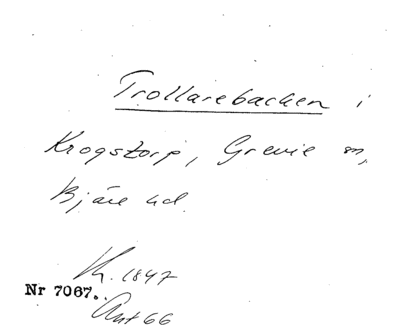 Trollarebacken i
Krogstorp, Grevie sn,
Bjäre hd.
Kh. 1847
Nr 7067.
Ant 66